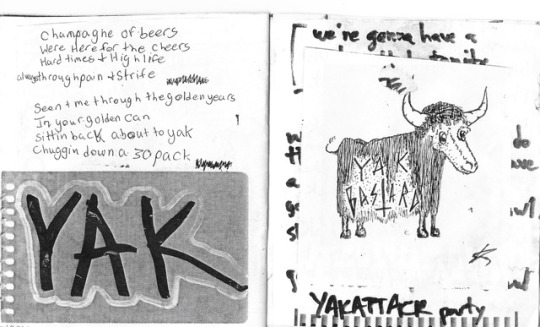 Champaghe of beers
Were Here for the cheers
Hard times + High life
always through pain + Strife
Seen + me through the golden years
In your golden can
sittin back about to yak
Chuggin down a 30 pack
YAK
we're gonna have a
YAK
BASTARD
do
YAKATTACK party